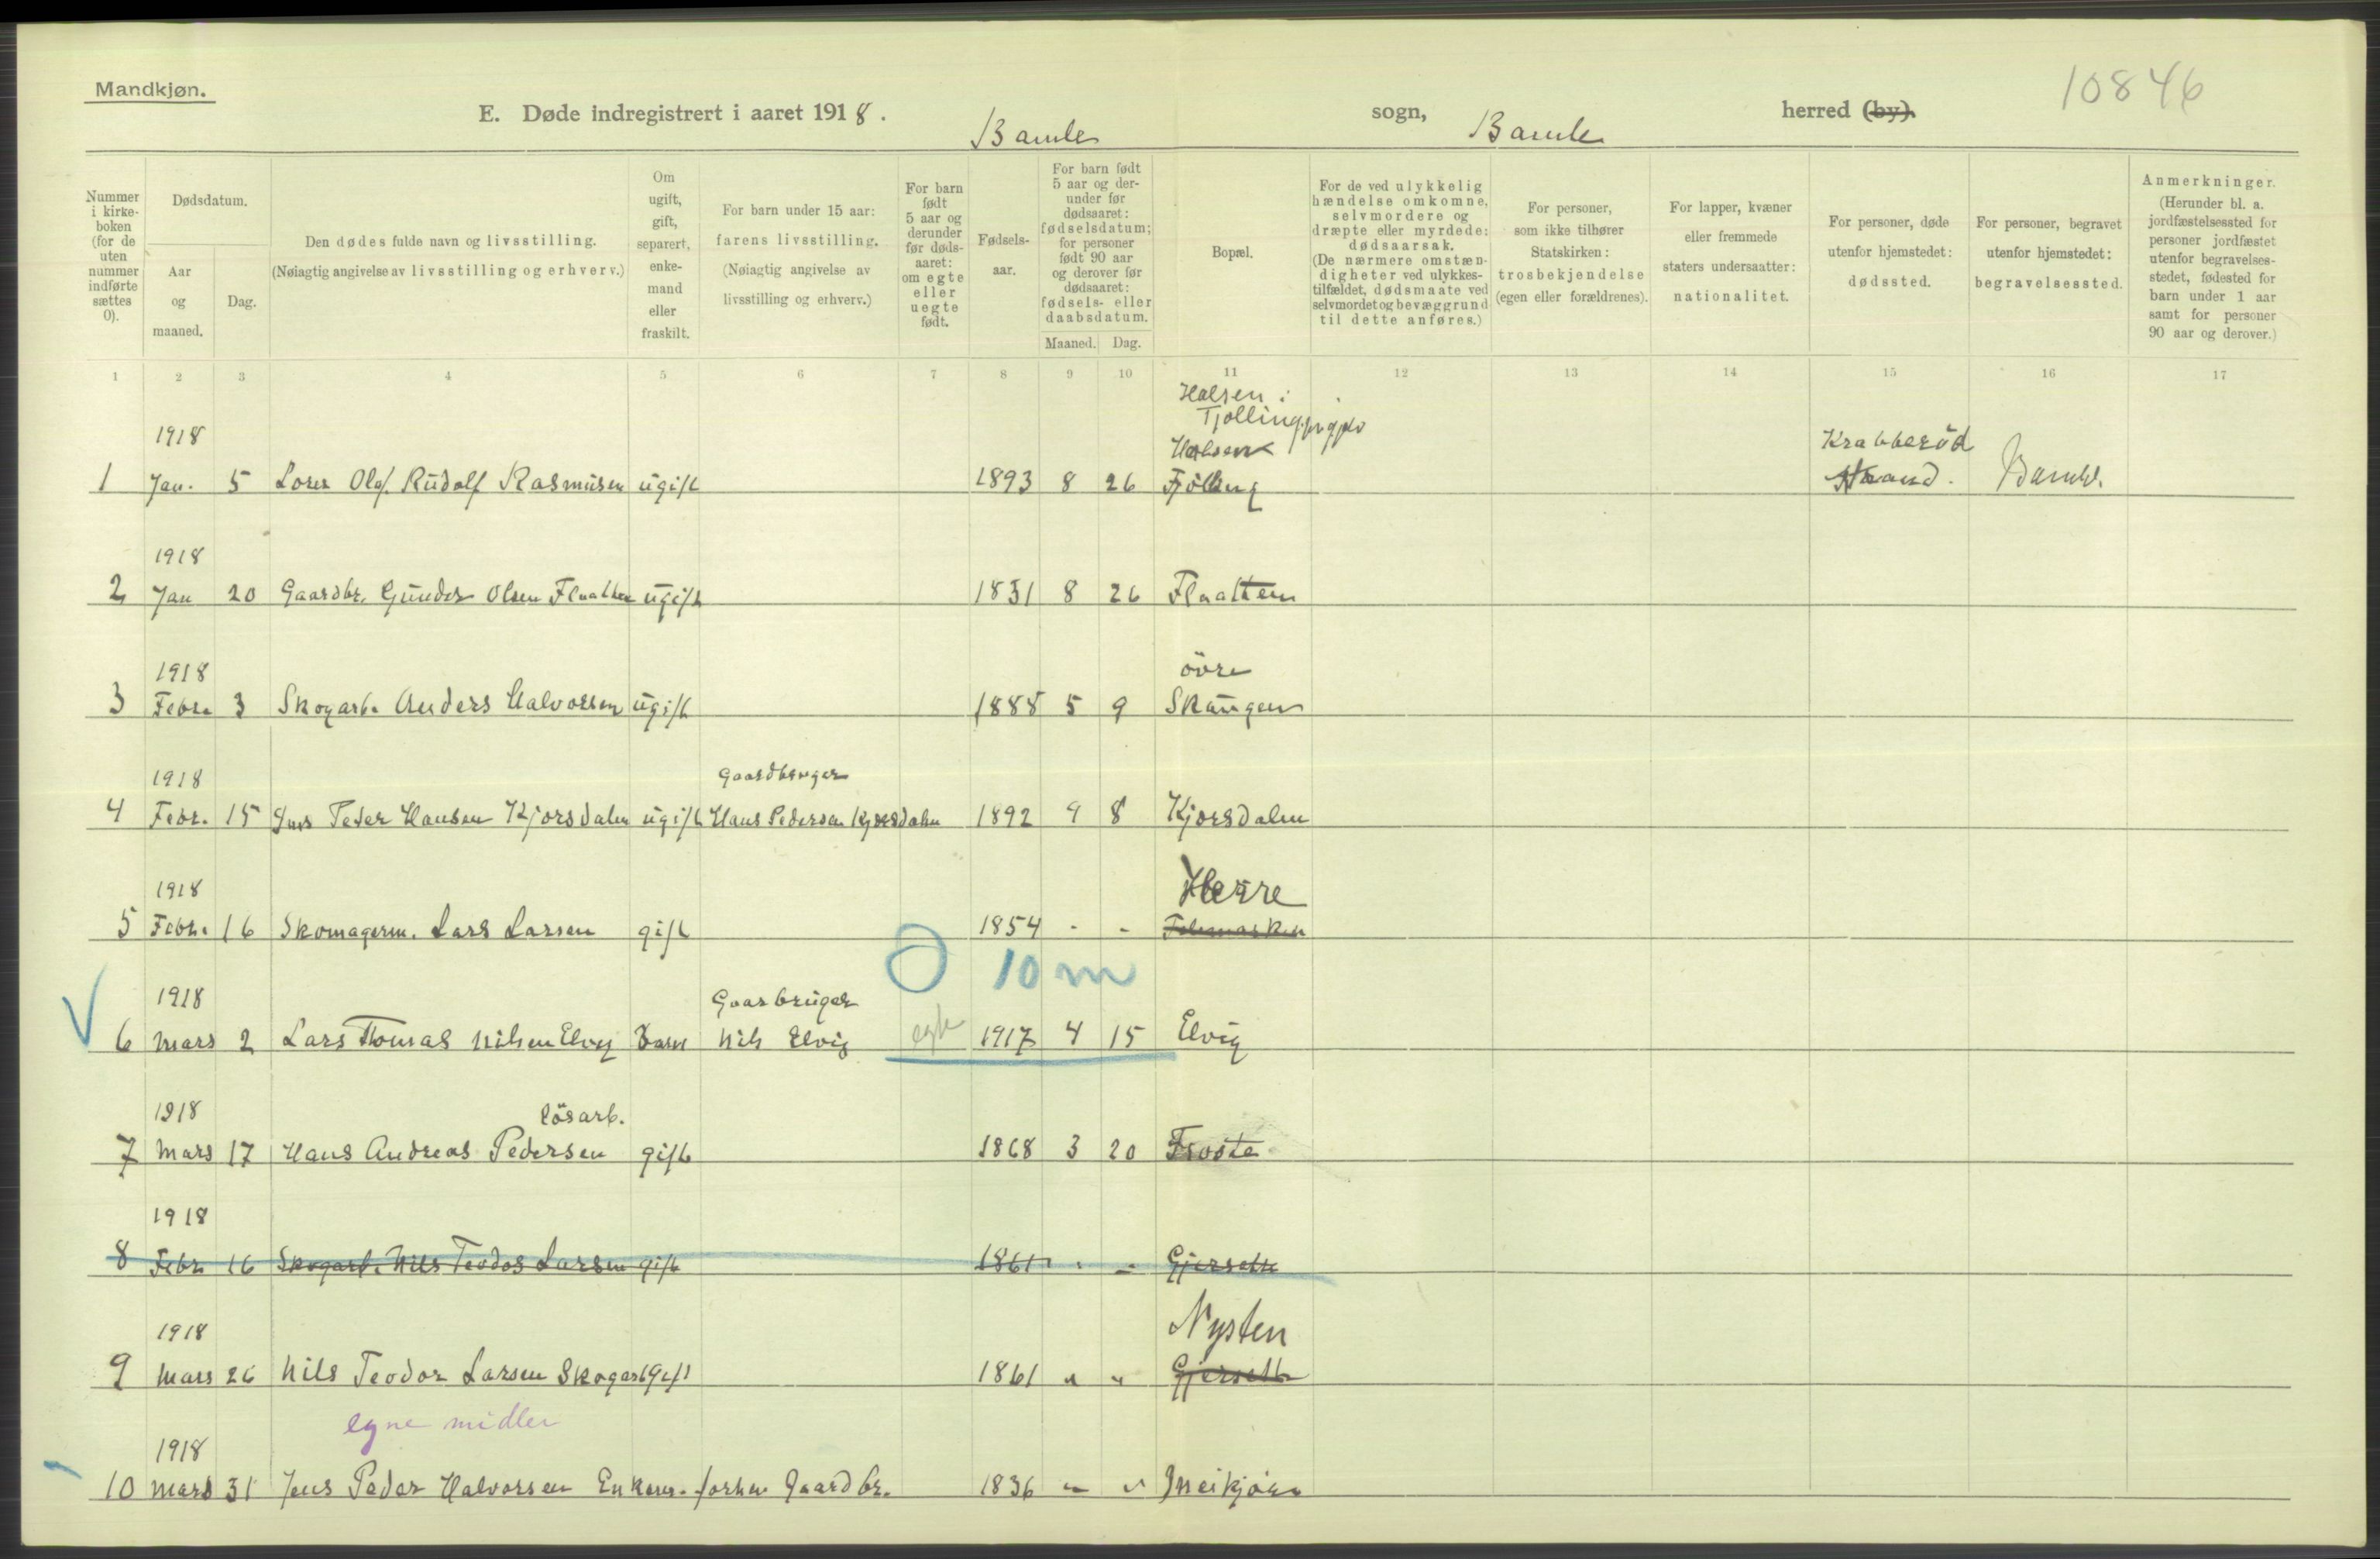 Mandkjøn.
10846
E. Døde indregistrert i aaret 1918. Bamle sogn, Bamle herred (by).
Nummer i kirkeboken (for de uten nummer indførte sættes 0).
Dødsdatum.
Aar og maaned.
Dag.
Den dødes fulde navn og livsstilling.
(Nøiagtig angivelse av livsstilling og erhverv.)
Om ugift, gift, separert, enkemand eller fraskilt.
For barn under 15 aar: farens livsstilling.
(Nøiagtig angivelse av livsstilling og erhverv.)
For barn født 5 aar og derunder før dødsaaret: om egte eller uegte født.
Fødselsaar.
For barn født 5 aar og derunder før dødsaaret: fødselsdatum; for personer født 90 aar og derover før dødsaaret: fødsels- eller daabsdatum.
Maaned. Dag.
Bopæl.
For de ved ulykkelig hændelse omkomne, selvmordere og dræpte eller myrdede: dødsaarsak.
(De nærmere omstændigheter ved ulykkestilfældet, dødsmaate ved selvmordet og bevæggrund til dette anføres.)
For personer, som ikke tilhører Statskirken: trosbekjendelse (egen eller forældrenes).
For lapper, kvæner eller fremmede staters undersaatter: nationalitet.
For personer, døde utenfor hjemstedet: dødssted.
For personer, begravet utenfor hjemstedet: begravelsessted.
Anmerkninger.
(Herunder bl. a. jordfæstelsessted for personer jordfæstet utenfor begravelsesstedet, fødested for barn under 1 aar samt for personer 90 aar og derover.)
1 2 3 4 5 6 7 8 9 10 11 12 13 14 15 16 17
Halsen i
Tjølling
1918 Halsen Krabberöd
1 Jan. 5 Olaf Rudolf Rasmusen ugift 1893 8 26 Tjölling Strand. Bamble.
1918
2 Jan 20 Gaardbr. Gunder Olsen Flaatten ugift 1831 8 26 Flaatten
1918 övre
3 Febr. 3 Skogarb. Anders Halvorsen ugift 1888 5 9 Skaugen
1918 Gaardbruger
4 Febr. 15 Jens Peder Hansen Kjorsdalen ugift Hans Pedersen Kjorsdalen 1892 9 8 Kjorsdalen
1918 Herre
5 Febr. 16 Skomagerm. Lars Larsen gift 1854 - -
10 m
1918 Gaarbruger
6 Mars 2 Lars Thomas Nilsen Elvig Barn Nils Elvig egte 1917 4 15 Elvig
1918 lösarb.
7 Mars 17 Hans Andreas Pedersen gift 1868 3 20 Froste
1918
8 Febr. 16 Skogarb. Nils Teodor Larsen gift 1861 " - Gjersett
1918 Nysten
9 Mars 26 Nils Teodor Larsen Skogarb gift 1861 " " Gjersett
egne midler
1918
10 Mars 31 Jens Peder Halvorsen Enkem. forhen Gaardbr. 1836 " "